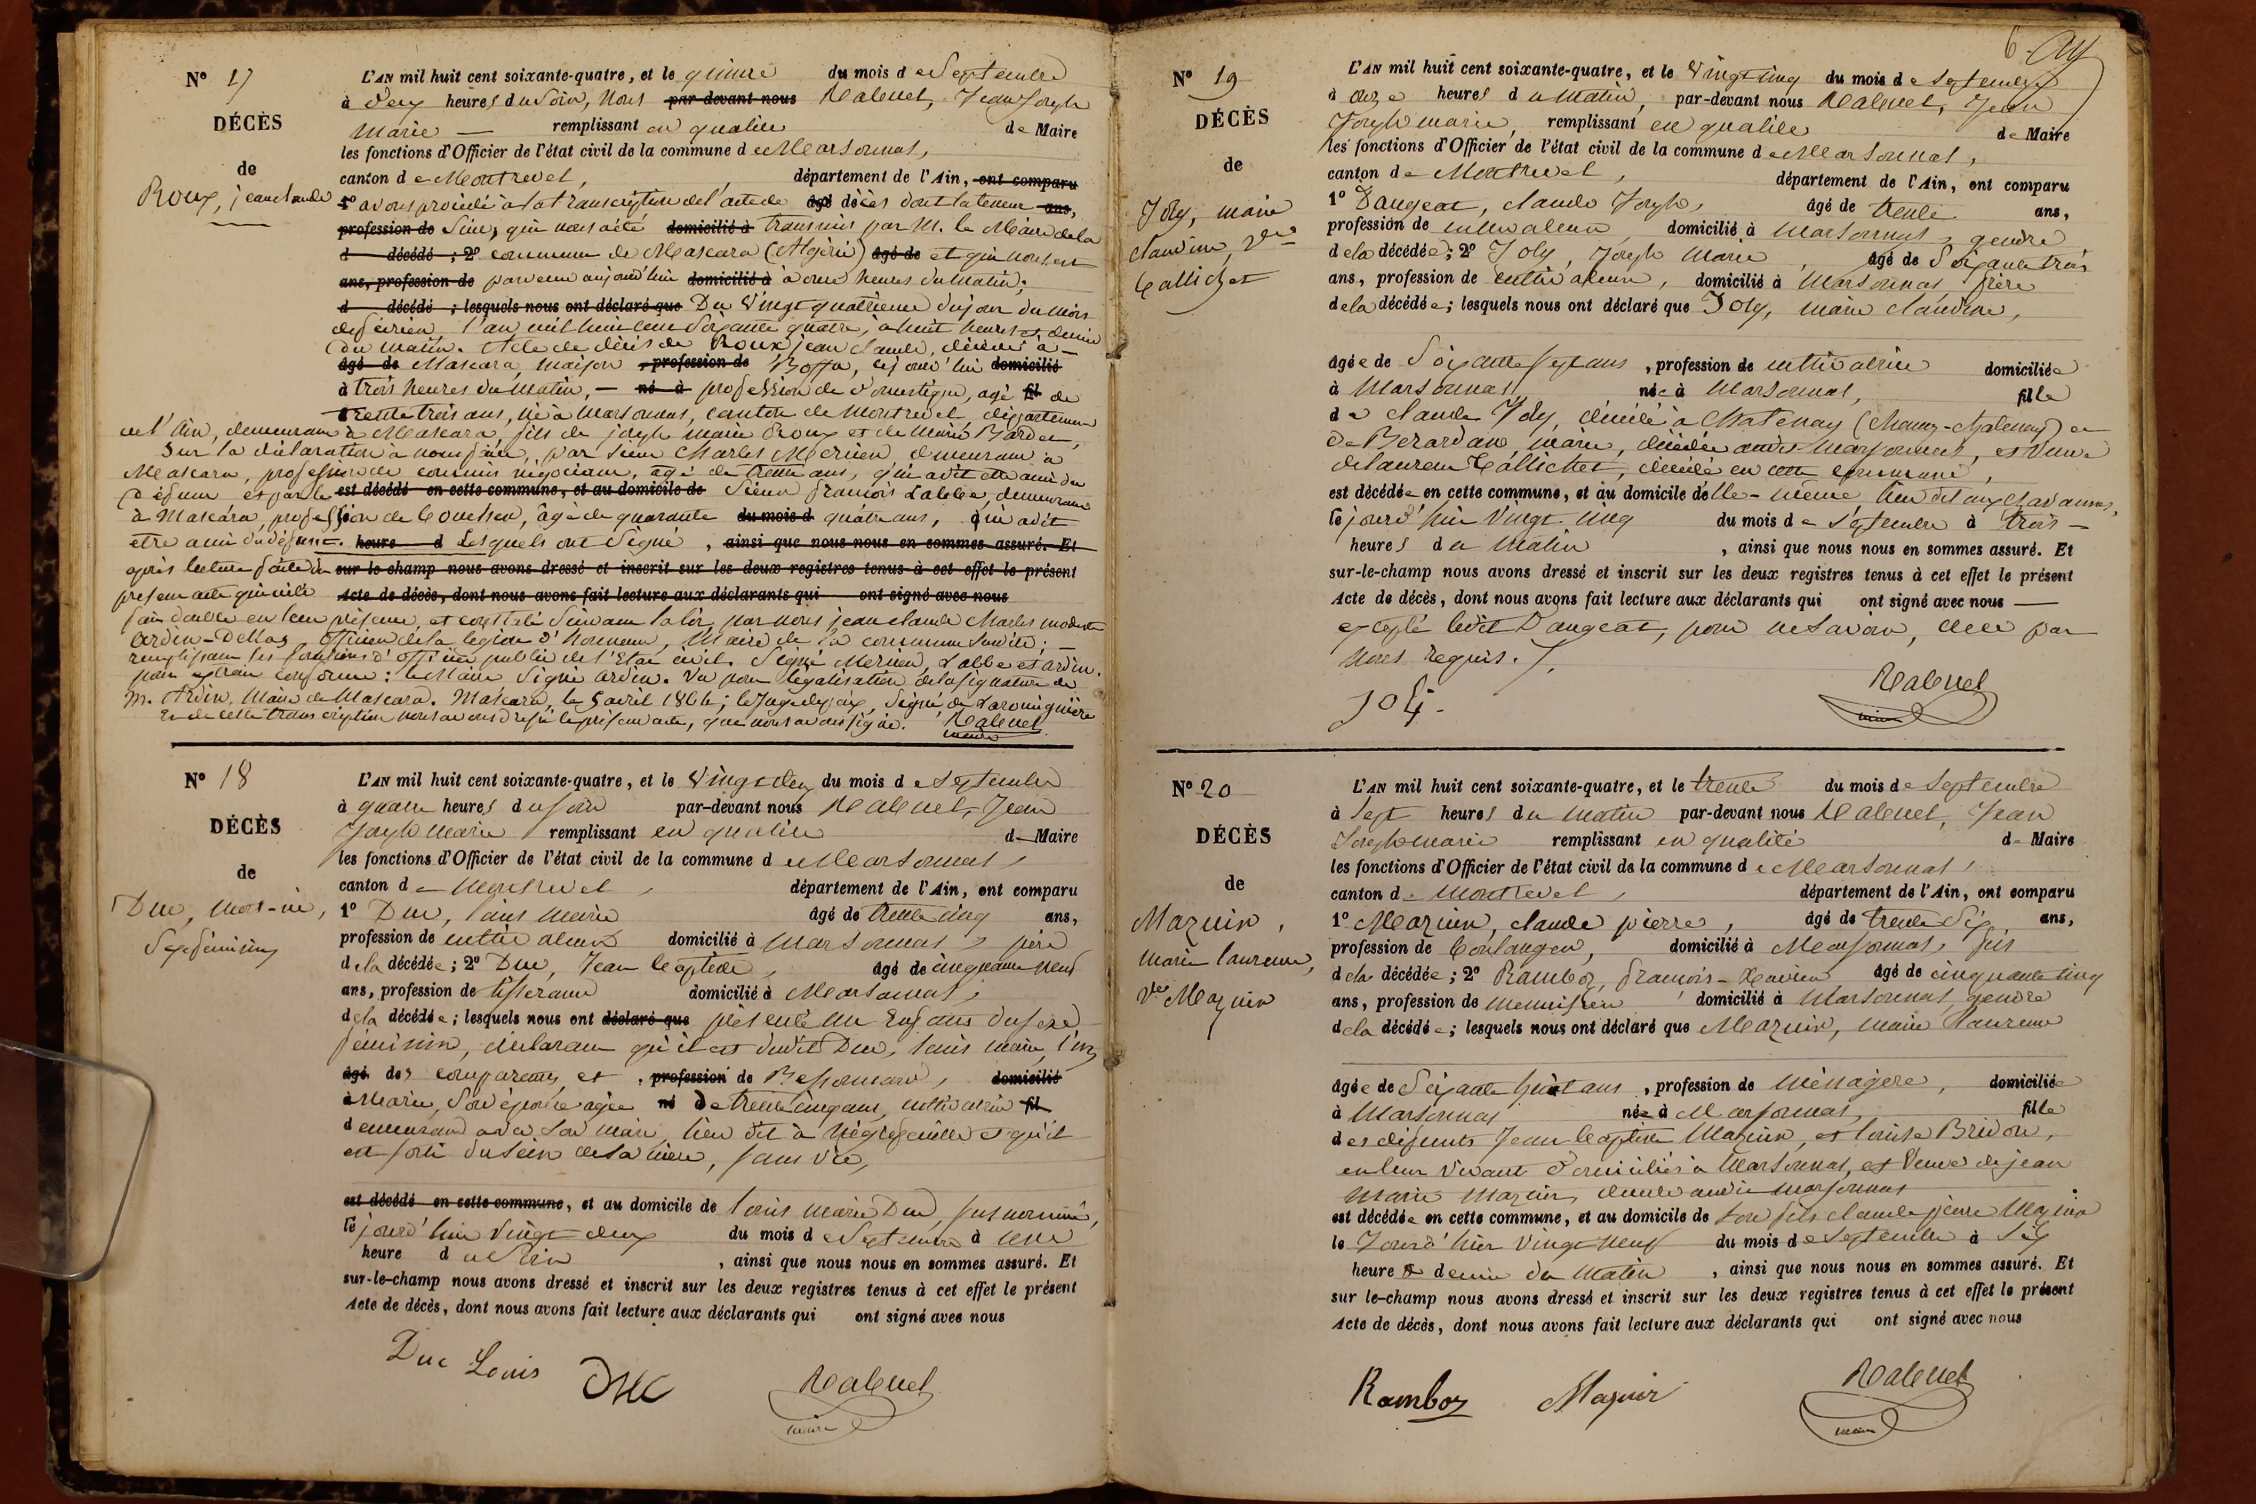 N° 17
DÉCÈS
de
Roux, jean claude
L'AN mil huit cent soixante-quatre, et le quinze du mois de Septembre
à deux heures du Soir, Nous par-devant nous Rabuel, Jean Joseph
Marie — remplissant en qualité de Maire
les fonctions d'Officier de l'état civil de la commune de Marsonnas,
canton de Montrevel, département de l'Ain, ont comparu
1° avons procédé à la transcription de l'acte de âgé décès dont la teneur ans,
profession de Suit, qui nous a été domicilié à transmis par M. le Maire de la
d décédé ; 2° commune de Mascara (Algérie) âgé de et qui nous est
ans, profession de parvenu aujourd'hui domicilié à à onze heures du matin;
d décédé ; lesquels nous ont déclaré que Du Vingt quatrième du jour du mois
de février l'an mil huit cent Soixante quatre, à huit heures et demie
du matin. Acte de décès de Roux jean claude, décédé à
âgé de Mascara, maison profession de Boffa, ce jourd'hui domicilié
à trois heures du matin, — né à profession de domestique, âgé fil de
trente trois ans, né à Marsonnas, canton de Montrevel, département
de l'Ain, demeurant à Mascara, fils de joseph marie Roux et de Marie Bardet,
Sur la déclaration à nous faite, par Sieur Charles Merieu, demeurant à
Mascara, profession de commis négociant, âgé de trente ans, qui a dit être ami du
défunt et par le est décédé en cette commune, et au domicile de Sieur françois Labbe, demeurant
à Mascara, profession de âgé de quarante du mois d quatre ans, qui a dit
être ami du défunt. heure d Lesquels ont Signé , ainsi que nous nous en sommes assuré. Et
après lecture faite du sur le champ nous avons dressé et inscrit sur les deux registres tenus à cet effet le présent
présent acte qui a été Acte de décès, dont nous avons fait lecture aux déclarants qui ont signé avec nous
fait double en leur présence, et constaté Suivant la loi, par nous jean claude Charles modeste
Ardin-Delteg, officier de la légion d'honneur, Maire de la commune Susdite; —
remplissant les fonctions d'officier public de l'Etat civil. Signé Merieu, Labbe et Ardin.
pour extrait conforme: le Maire Signé Ardin. Vu pour légalisation de la signature de
M. Ardin, Maire de Mascara. Mascara, le 5 avril 1864; le juge de paix, Signé de Laromiguière
Et de cette transcription nous avons dressé le présent acte, que nous avons signé. Rabuel
maire
N° 18
DÉCÈS
de
Duc, mort-né,
Sexe féminin
L'AN mil huit cent soixante-quatre, et le Vingt-deux du mois de Septembre
à quatre heures du soir par-devant nous Rabuel, Jean
Joseph Marie remplissant en qualité de Maire
les fonctions d'Officier de l'état civil de la commune de Marsonnas,
canton de Montrevel, département de l'Ain, ont comparu
1° Duc, Louis Marie âgé de trente cinq ans,
profession de cultivateur domicilié à Marsonnas, père
de la décédée; 2° Duc, Jean Baptiste, âgé de cinquante neuf
ans, profession de tisserand domicilié à Marsonnas,
de la décédée; lesquels nous ont déclaré que présenté un Enfant du sexe
féminin, déclarant qu'il est dudit Duc, Louis Marie, l'un
âgé des comparants, et , profession de Bessonnard, domicilié
à Marie, Son épouse âgée né de trente cinq ans, cultivatrice fil
demeurant avec Son mari, lieu dit à Négrefeuille et qu'il
est sorti du sein de Sa mère, sans vie,
est décédé en cette commune, et au domicile de Louis Marie Duc, susnommé,
le jourd'hui Vingt deux du mois de Septembre à une
heure du Soir , ainsi que nous nous en sommes assuré. Et
sur-le-champ nous avons dressé et inscrit sur les deux registres tenus à cet effet le présent
Acte de décès, dont nous avons fait lecture aux déclarants qui ont signé avec nous
Duc Louis Duc Rabuel
maire
6
N° 19
DÉCÈS
de
Joly, marie
claudine, Vve
Callichet
L'AN mil huit cent soixante-quatre, et le Vingt-cinq du mois de Septembre
à onze heures du Matin, par-devant nous Rabuel, Jean
Joseph marie, remplissant en qualité de Maire
les fonctions d'Officier de l'état civil de la commune de Marsonnas,
canton de Montrevel, département de l'Ain, ont comparu
1° Dangeat, claude Joseph, âgé de trente ans,
profession de cultivateur domicilié à Marsonnas, gendre
de la décédée; 2° Joly, Joseph Marie, âgé de Soixante trois
ans, profession de cultivateur, domicilié à Marsonnas, frère
de la décédée; lesquels nous ont déclaré que Joly, marie claudine,
âgée de Soixante sept ans, profession de cultivatrice domiciliée
à Marsonnas, née à Marsonnas, fille
de claude Joly, décédé à Chatenay (Chaux-Chatenay) et
de Berardan, Marie, décédée audit Marsonnas, et Veuve
de laurent Callichet, décédé en cette commune,
est décédée en cette commune, et au domicile d'elle-même lieu dit aux chavannes,
le jourd'hui Vingt-cinq du mois de Septembre à trois —
heures du Matin , ainsi que nous nous en sommes assuré. Et
sur-le-champ nous avons dressé et inscrit sur les deux registres tenus à cet effet le présent
Acte de décès, dont nous avons fait lecture aux déclarants qui ont signé avec nous —
excepté ledit Dangeat, pour ne savoir, de ce par
nous requis.
Joli Rabuel
maire
N° 20
DÉCÈS
de
Mazuir,
Marie laurence,
Vve Mazuir
L'AN mil huit cent soixante-quatre, et le trente du mois de Septembre
à Sept heures du Matin par-devant nous Rabuel, Jean
Joseph marie remplissant en qualité de Maire
les fonctions d'Officier de l'état civil de la commune de Marsonnas,
canton de Montrevel, département de l'Ain, ont comparu
1° Mazuir, claude pierre, âgé de trente Six ans,
profession de boulanger, domicilié à Marsonnas, fils
de la décédée; 2° Ramboz, françois-Xavier âgé de cinquante cinq
ans, profession de Menuisier domicilié à Marsonnas, gendre
de la décédée; lesquels nous ont déclaré que Mazuir, Marie Laurence
âgée de Soixante huit ans, profession de Ménagère, domiciliée
à Marsonnas née à Marsonnas, fille
des défunts Jean Baptiste Mazuir, et louise Bridon,
en leur Vivant domiciliés à Marsonnas, et Veuve de jean
Marie Mazuir, décédé audit Marsonnas
est décédée en cette commune, et au domicile de Son fils claude pierre Mazuir
le Jourd'hier Vingt Neuf du mois de Septembre à Six
heure & demie du Matin , ainsi que nous nous en sommes assuré. Et
sur le-champ nous avons dressé et inscrit sur les deux registres tenus à cet effet le présent
Acte de décès, dont nous avons fait lecture aux déclarants qui ont signé avec nous
Ramboz Mazuir Rabuel
maire